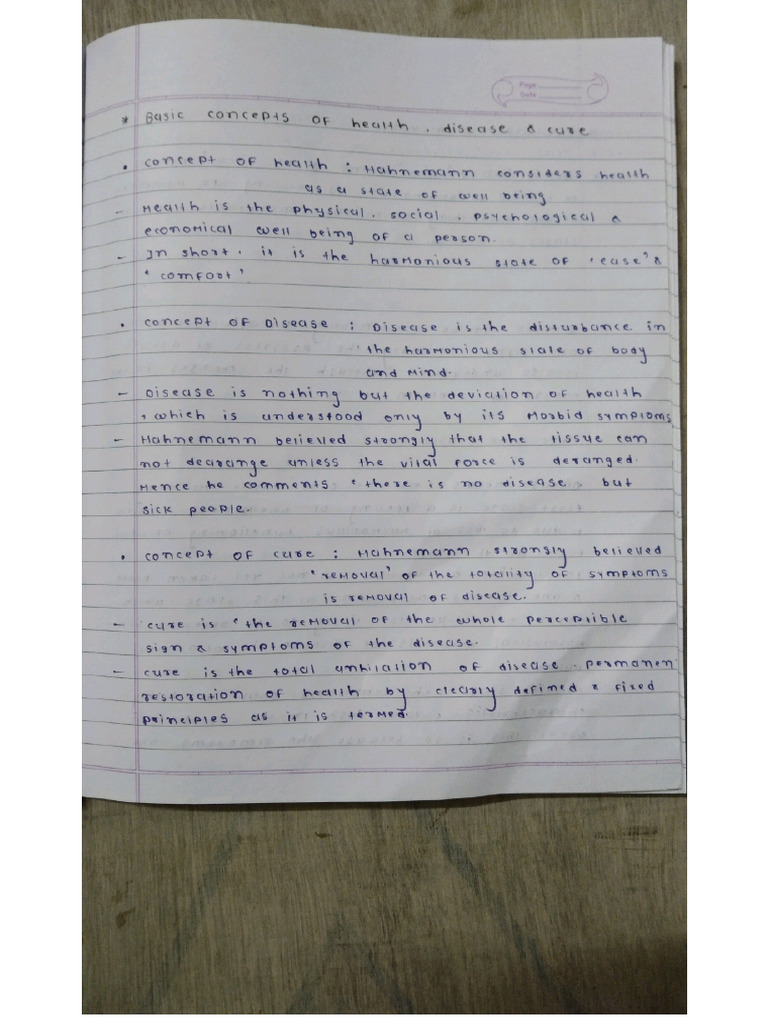 Page
Date
* Basic concepts of health, disease & cure
• concept of health : Hahnemann considers health
as a state of well being
- Health is the physical, social, psychological &
economical well being of a person.
- In short, it is the harmonious state of 'ease' &
'comfort'
• concept of Disease : Disease is the disturbance in
the harmonious state of body
and Mind.
- Disease is nothing but the deviation of health
, which is understood only by its Morbid symptoms
- Hahnemann believed strongly that the tissue can
not dearange unless the vital force is deranged.
Hence he comments 'there is no disease, but
sick people.
• concept of cure : Hahnemann strongly believed
'removal' of the totality of symptoms
is removal of disease.
- cure is 'the removal of the whole perceptible
sign & symptoms of the disease.
- cure is the total anhilation of disease, permanen
restoration of health by clearly defined & fixed
principles as it is termed.